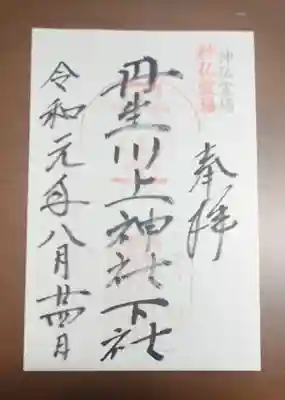 神仏霊場
奉拝
丹生川上神社下社
令和元年八月廿四日